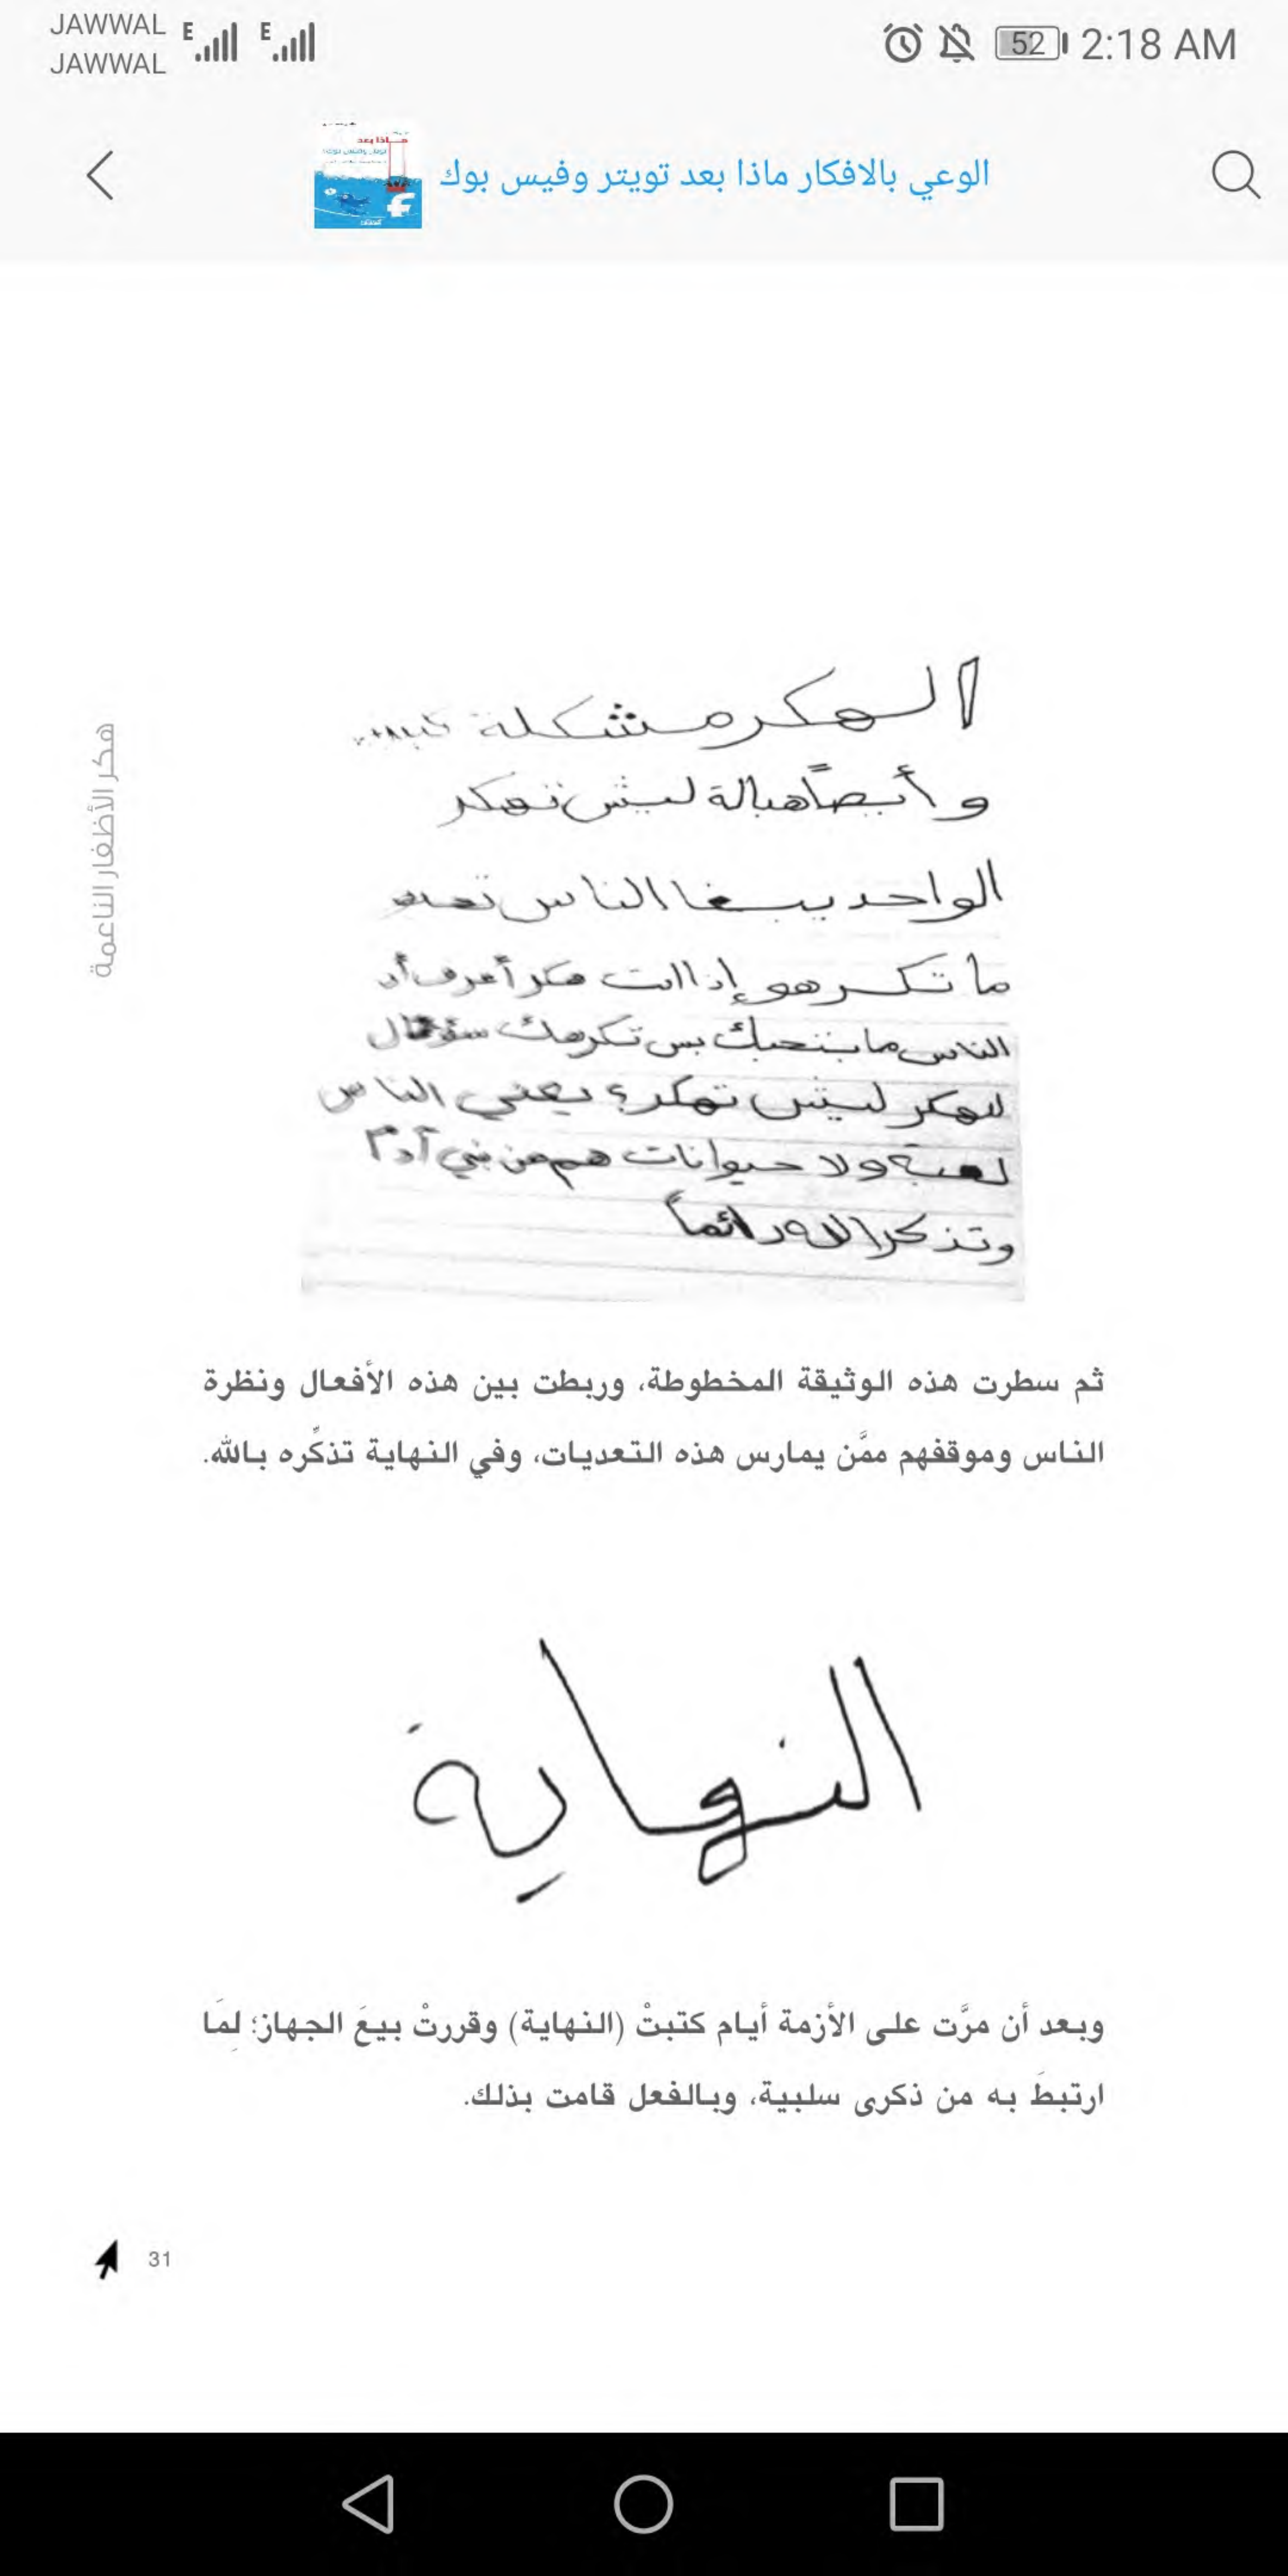 JAWWAL
JAWWAL
E E
52 2:18 AM
الوعي بالافكار ماذا بعد تويتر وفيس بوك
هكر الأظفار الناعمة
الهكر مشكلة
و أيضاً هبالة ليش تهكر
الواحد يبغا الناس
ما تكرهو إذا انت هكر أعرف أن
الناس ما بتحبك بس تكرهك سؤال
للهكر ليش تهكر؟ يعني الناس
لعبة ولا حيوانات هم من بني آدم
وتذكر الله دائماً
ثم سطرت هذه الوثيقة المخطوطة، وربطت بين هذه الأفعال ونظرة
الناس وموقفهم ممَّن يمارس هذه التعديات، وفي النهاية تذكِّره بالله.
النهاية
وبعد أن مرَّت على الأزمة أيام كتبتْ (النهاية) وقررتْ بيعَ الجهاز؛ لِمَا
ارتبطَ به من ذكرى سلبية، وبالفعل قامت بذلك.
31